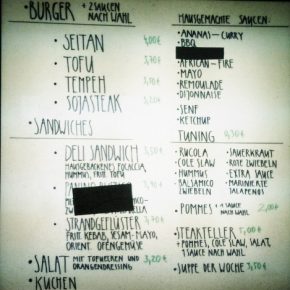 • BURGER + 2 SAUCEN
NACH WAHL
• SEITAN 4,00€
• TOFU 3,70€
• TEMPEH 3,70€
• SOJASTEAK 3,20€
• SANDWICHES
• DELI SANDWICH 3,50€
HAUSGEBACKENES FOCACCIA,
HUMMUS, FRIT. TOFU
• STRANDGEFLÜSTER 3,70€
FRIT. KEBAB, SESAM-MAYO,
ORIENT. OFENGEMÜSE
• SALAT MIT TOPWEREN UND 3,20€
ORANGENDRESSING
• KUCHEN
HAUSGEMACHTE SAUCEN:
- ANANAS-CURRY
- BBQ
- AFRICAN-FIRE
- MAYO
- REMOULADE
- DIJONNAISE
- SENF
- KETCHUP
TUNING 0,30€
- RUCOLA
- COLE SLAW
- HUMMUS
- BALSAMICO
ZWIEBELN
- SAUERKRAUT
- ROTE ZWIEBELN
- EXTRA SAUCE
- MARINIERTE
JALAPENOS
• POMMES + 1 SAUCE
NACH WAHL 2,00€
• STEAKTELLER 5,00€
+ POMMES, COLE SLAW, SALAT,
1 SAUCE NACH WAHL
• SUPPE DER WOCHE 3,50€